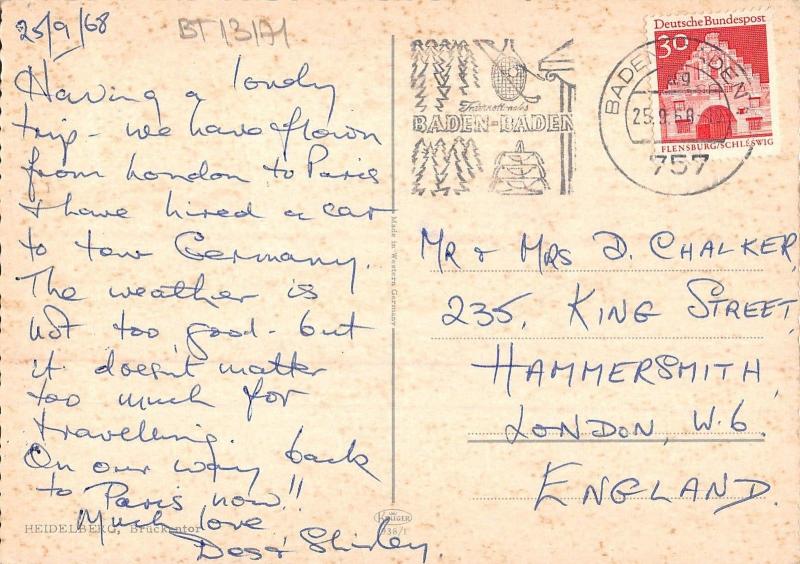 25/9/68
BT 13171
Having a lovely
trip - we have flown
from London to Paris
& have hired a car
to tour Germany.
The weather is
not too good - but
it doesn't matter
too much for
travelling.
On our way back
to Paris now!!
Much love
Des & Shirley.
HEIDELBERG, Brückentor
KRÜGER
Made in Western Germany
BADEN-BADEN
BADEN-BADEN 1
25.9.68
757
Deutsche Bundespost
30
FLENSBURG/SCHLESWIG
Mr & Mrs D. Chalker,
235, King Street,
Hammersmith,
London, W.6.
England.